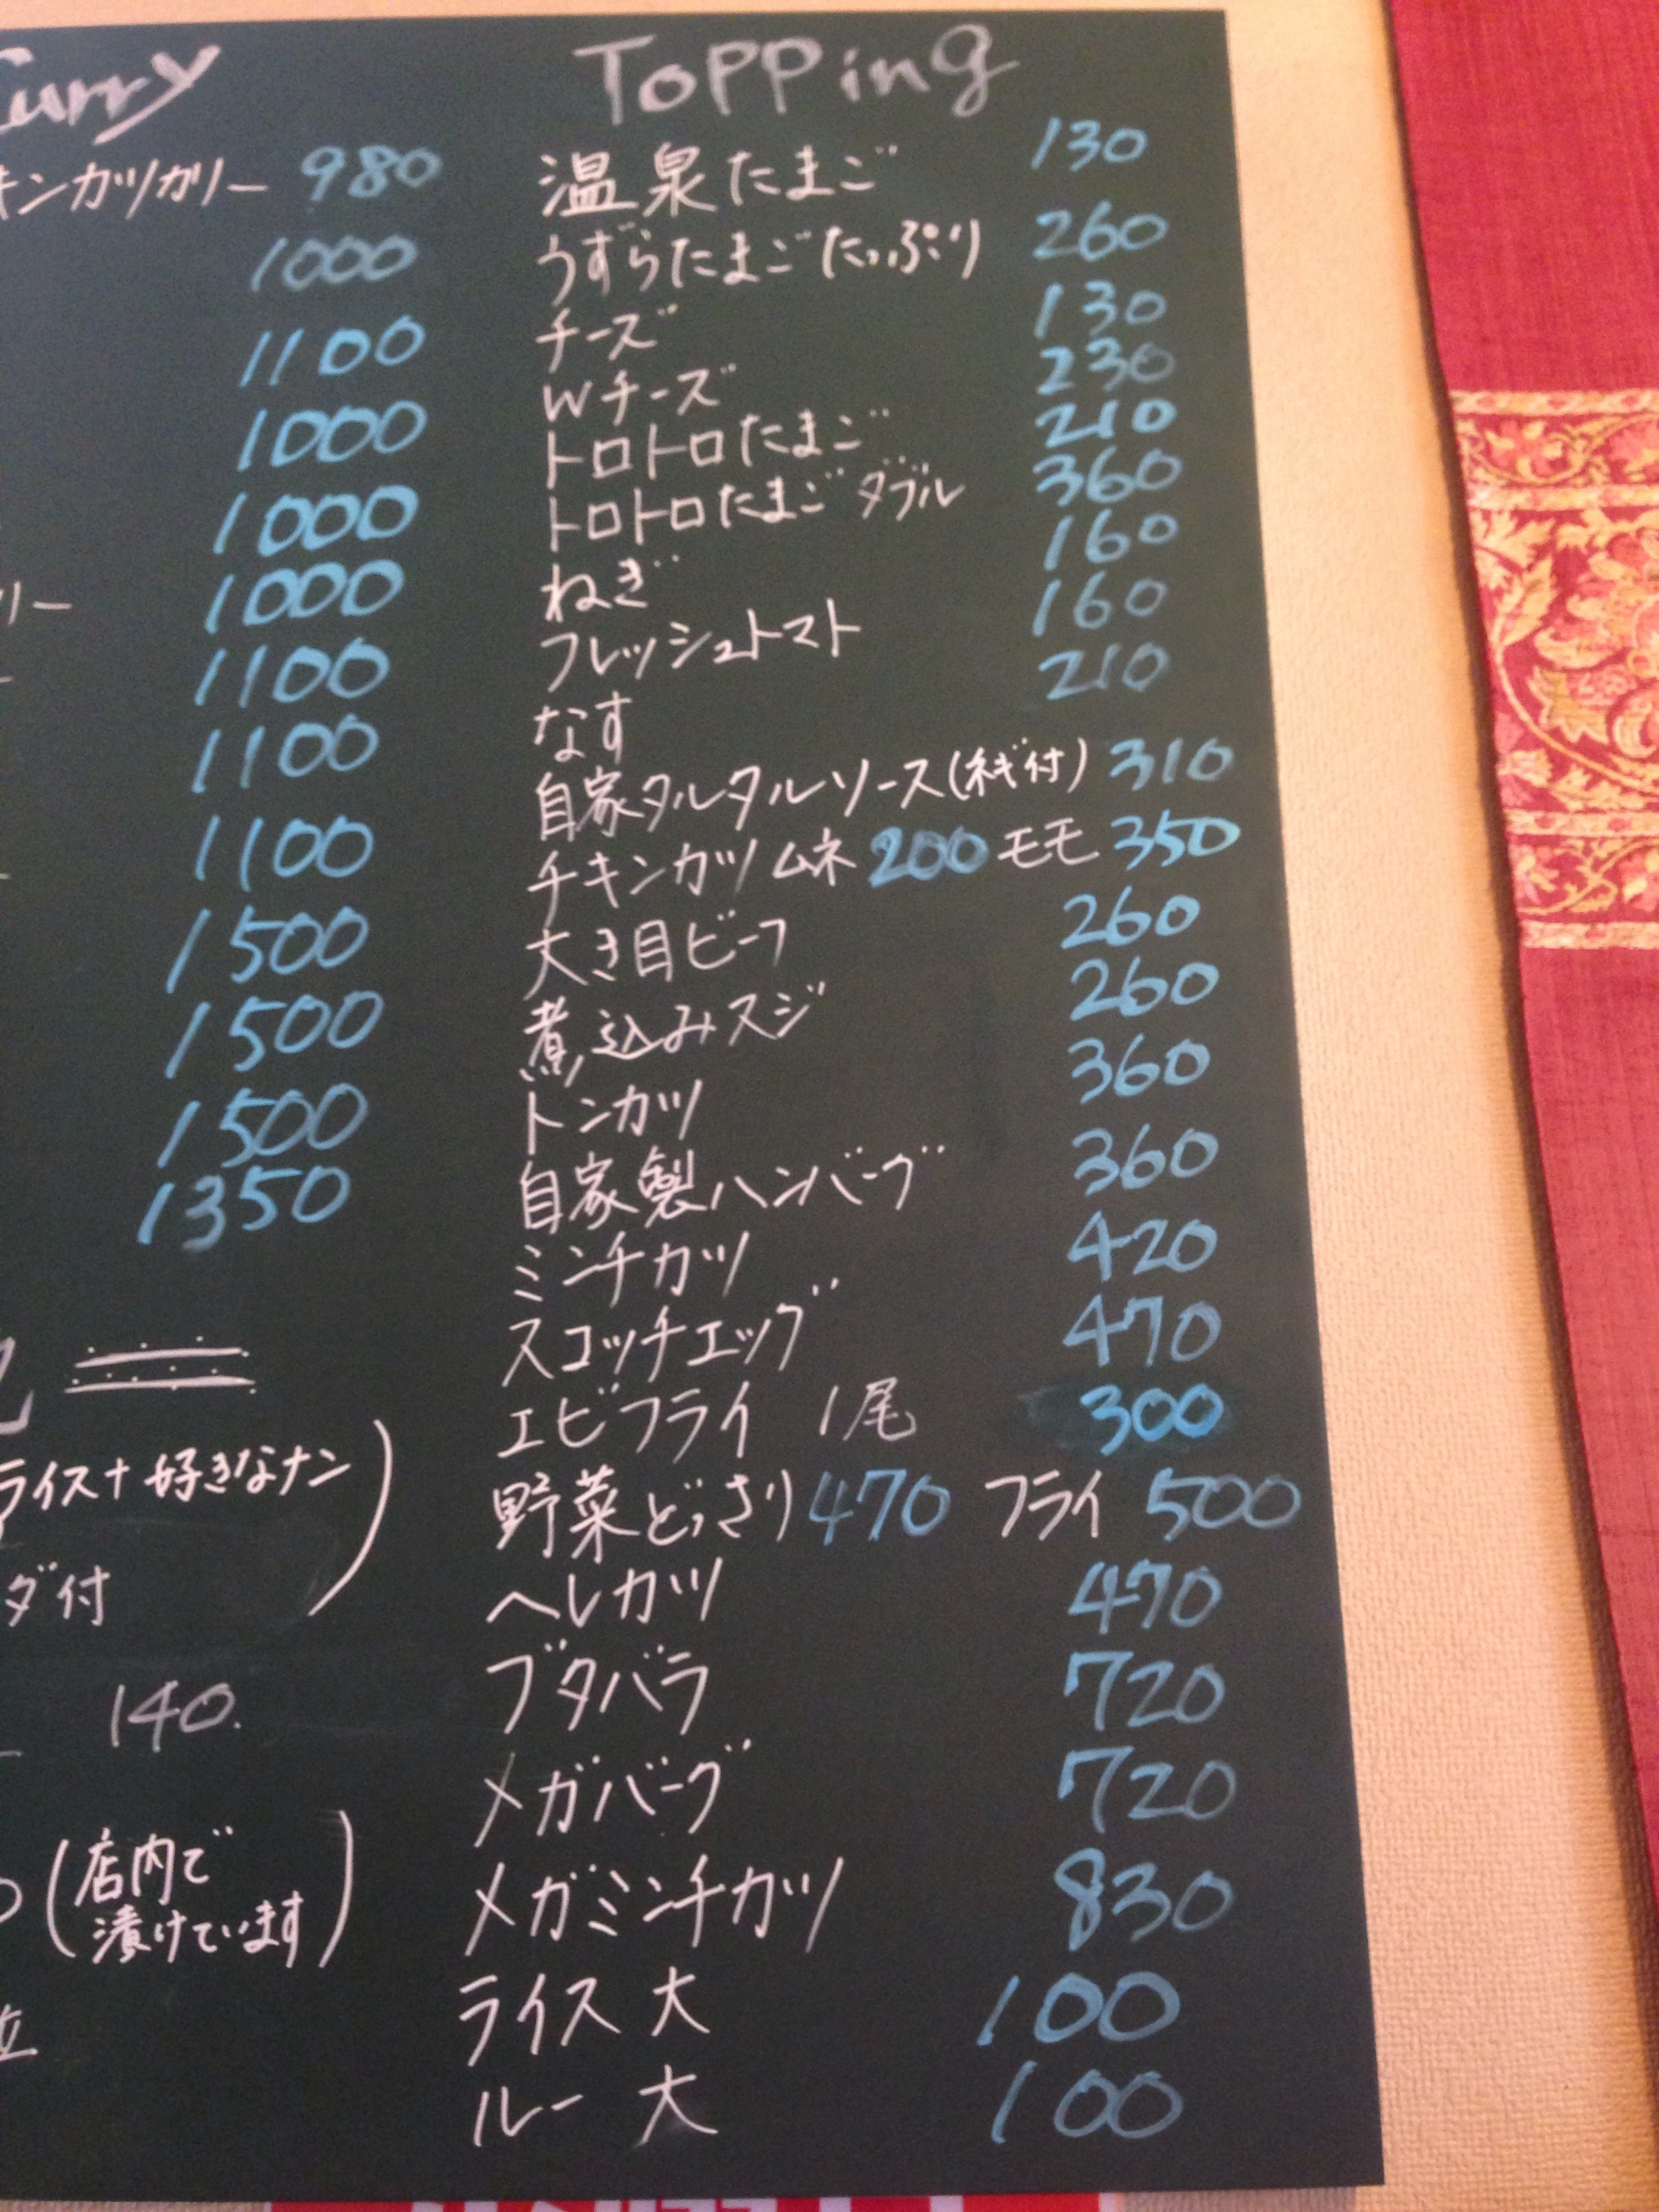 Curry
キンカツカリー 980
1000
1100
1000
1000
リー 1000
1100
1100
1100
1500
1500
1500
1350
ライス+好きなナン
ダ付
140
(店内で
漬けています)
Topping
温泉たまご 130
うずらたまごたっぷり 260
チーズ 130
Wチーズ 230
トロトロたまご 210
トロトロたまごダブル 360
ねぎ 160
フレッシュトマト 160
なす 210
自家タルタルソース(ネギ付) 310
チキンカツ ムネ 200 モモ 350
大き目ビーフ 260
煮込みスジ 260
トンカツ 360
自家製ハンバーグ 360
ミンチカツ 420
スコッチエッグ 470
エビフライ 1尾 300
野菜どっさり 470 フライ 500
ヘレカツ 470
ブタバラ 720
メガバーグ 720
メガミンチカツ 830
ライス 大 100
ルー 大 100